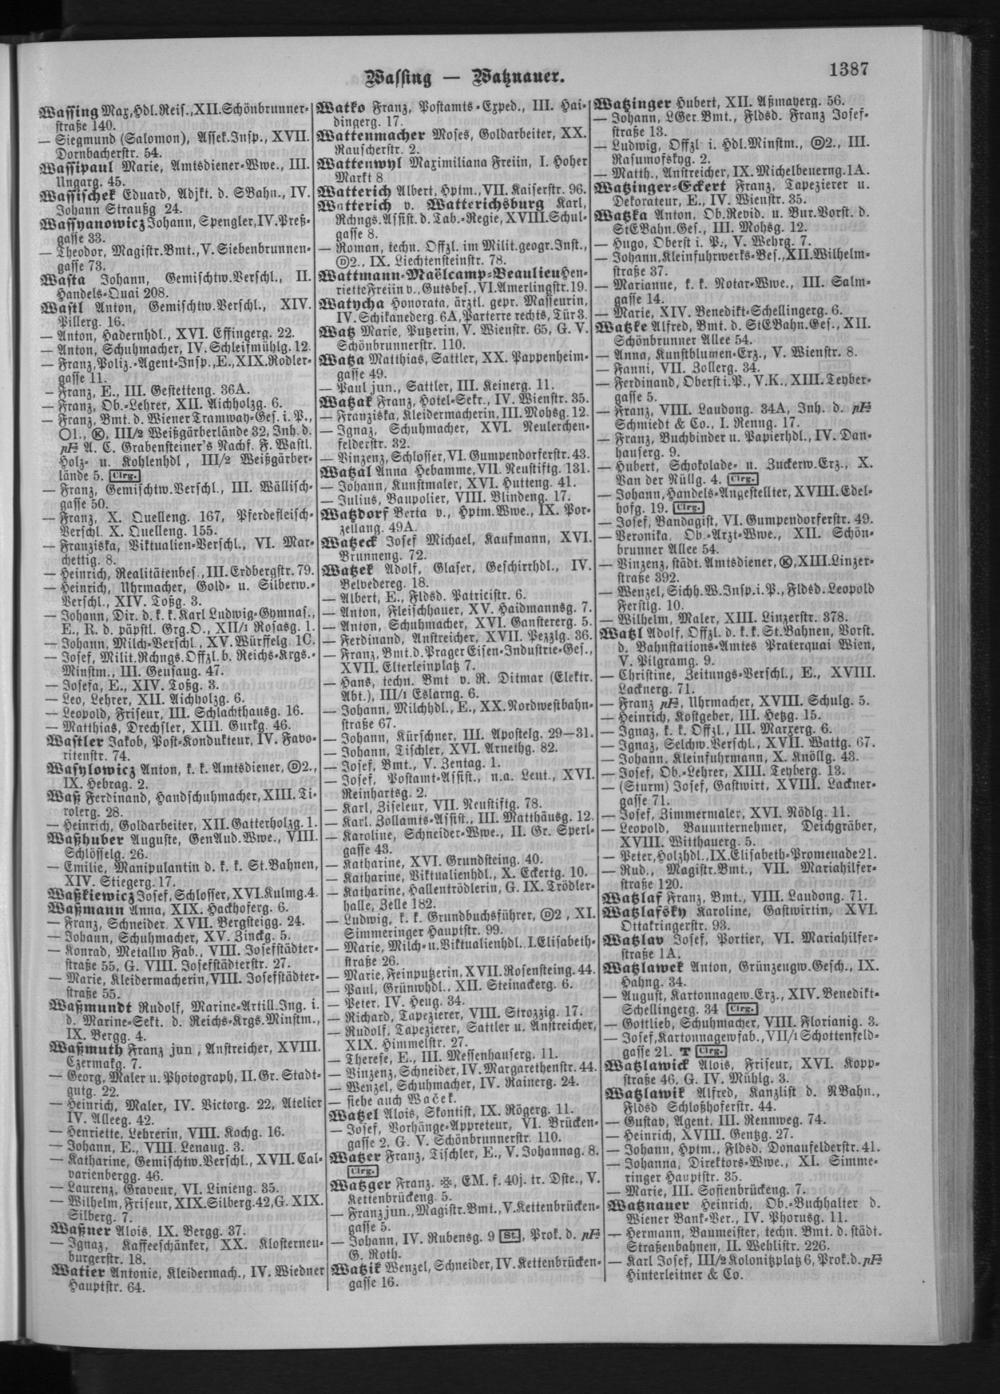 1387
Wassing — Watznauer.
Wassing Max, Hdl. Reis., XII. Schönbrunner-
straße 140.
— Siegmund (Salomon), Assek. Insp., XVII.
Dornbacherstr. 54.
Wassipaul Marie, Amtsdiener-Wwe., III.
Ungarg. 45.
Wassischek Eduard, Adjkt. d. SBahn., IV.
Johann Straußg 24.
Wassyanowicz Johann, Spengler, IV. Preß-
gasse 33.
— Theodor, Magistr. Bmt., V. Siebenbrunnen-
gasse 73.
Wasta Johann, Gemischtw. Verschl., II.
Handels-Quai 208.
Wastl Anton, Gemischtw. Verschl., XIV.
Pillerg. 16.
— Anton, Hadernhdl., XVI. Effingerg. 22.
— Anton, Schuhmacher, IV. Schleifmühlg. 12.
— Franz, Poliz.-Agent-Insp., E., XIX. Rodler-
gasse 11.
— Franz, E., III. Gestetteng. 36A.
— Franz, Ob.-Lehrer, XII. Aichholzg. 6.
— Franz, Bmt. d. Wiener Tramway-Ges. i. P.,
O1., Ⓚ, III/2 Weißgärberlände 32, Inh. d.
A. C. Grabensteiner's Nachf. F. Wastl.
Holz- u. Kohlenhdl, III/2 Weißgärber-
lände 5. Clrg.
— Franz, Gemischtw. Verschl., III. Wällisch-
gasse 50.
— Franz, X. Quelleng. 167, Pferdefleisch-
Verschl. X. Quelleng. 155.
— Franziska, Viktualien-Verschl., VI. Mar-
chettig. 8.
— Heinrich, Realitätenbes., III. Erdbergstr. 79.
— Heinrich, Uhrmacher, Gold- u. Silberw.-
Verschl., XIV. Toßg. 3.
— Johann, Dir. d. k. k. Karl Ludwig-Gymnas.,
E., R. d. päpstl. Grg. O., XII/1 Rosasg. 1.
— Johann, Milch-Verschl., XV. Würffelg. 1C.
— Josef, Milit. Rchngs. Offzl. b. Reichs-Krgs.-
Minstm., III. Geusaug. 47.
— Josefa, E., XIV. Toßg. 3.
— Leo, Lehrer, XII. Aichholzg. 6.
— Leopold, Friseur, III. Schlachthausg. 16.
— Matthias, Drechsler, XIII. Gurkg. 46.
Wastler Jakob, Post-Kondukteur, IV. Favo-
ritenstr. 74.
Wasylowicz Anton, k. k. Amtsdiener, ⓓ2.,
IX. Hebrag. 2.
Waß Ferdinand, Handschuhmacher, XIII. Ti-
rolerg. 28.
— Heinrich, Goldarbeiter, XII. Gatterholzg. 1.
Waßhuber Auguste, GenAud. Wwe., VIII.
Schlösselg. 26.
— Emilie, Manipulantin d. k. k. St. Bahnen,
XIV. Stiegerg. 17.
Waßkiewicz Josef, Schlosser, XVI. Kulmg. 4.
Waßmann Anna, XIX. Hackhoferg. 6.
— Franz, Schneider, XVII. Bergsteigg. 24.
— Johann, Schuhmacher, XV. Zinckg. 5.
— Konrad, Metallw Fab., VIII. Josefstädter-
straße 55, G. VIII. Josefstädterstr. 27.
— Marie, Kleidermacherin, VIII. Josefstädter-
straße 55.
Waßmundt Rudolf, Marine-Artill. Ing. i.
d. Marine-Sekt. d. Reichs-Krgs. Minstm.,
IX. Bergg. 4.
Waßmuth Franz jun, Anstreicher, XVIII.
Czermakg. 7.
— Georg, Maler u. Photograph, II. Gr. Stadt-
gutg. 22.
— Heinrich, Maler, IV. Victorg. 22, Atelier
IV. Alleeg. 42.
— Henriette, Lehrerin, VIII. Kochg. 16.
— Johann, E., VIII. Lenaug. 3.
— Katharine, Gemischtw. Verschl., XVII. Cal-
varienbergg. 46.
— Laurenz, Graveur, VI. Linieng. 35.
— Wilhelm, Friseur, XIX. Silberg. 42, G. XIX.
Silberg. 7.
Waßner Alois, IX. Bergg. 37.
— Ignaz, Kaffeeschänker, XX. Klosterneu-
burgerstr. 18.
Watier Antonie, Kleidermach., IV. Wiedner
Hauptstr. 64.
Watko Franz, Postamts-Exped., III. Hai-
dingerg. 17.
Wattenmacher Moses, Goldarbeiter, XX.
Rauscherstr. 2.
Wattenwyl Maximiliana Freiin, I. Hoher
Markt 8
Watterich Albert, Hptm., VII. Kaiserstr. 96.
Watterich v. Watterichsburg Karl,
Rchngs. Assist. d. Tab.-Regie, XVIII. Schul-
gasse 8.
— Roman, techn. Offzl. im Milit. geogr. Inst.,
ⓓ2., IX. Liechtensteinstr. 78.
Wattmann-Maëlcamp-Beaulieu Hen-
riette Freiin v., Gutsbes., VI. Amerlingstr. 19.
Watycha Honorata, ärztl. gepr. Masseurin,
IV. Schikanederg. 6A, Parterre rechts, Tür 3.
Watz Marie, Putzerin, V. Wienstr. 65, G. V.
Schönbrunnerstr. 110.
Watza Matthias, Sattler, XX. Pappenheim-
gasse 49.
— Paul jun., Sattler, III. Keinerg. 11.
Watzak Franz, Hotel-Sekr., IV. Wienstr. 35.
— Franziska, Kleidermacherin, III. Mohsg. 12.
— Ignaz, Schuhmacher, XVI. Neulerchen-
felderstr. 32.
— Vinzenz, Schlosser, VI. Gumpendorferstr. 43.
Watzal Anna Hebamme, VII. Neustiftg. 131.
— Johann, Kunstmaler, XVI. Hutteng. 41.
— Julius, Baupolier, VIII. Blindeng. 17.
Watzdorf Berta v., Hptm. Wwe., IX. Por-
zellang. 49A.
Watzeck Josef Michael, Kaufmann, XVI.
Brunneng. 72.
Watzek Adolf, Glaser, Geschirrhdl., IV.
Belvedereg. 18.
— Albert, E., Fldsd. Patricistr. 6.
— Anton, Fleischhauer, XV. Haidmannsg. 7.
— Anton, Schuhmacher, XVI. Ganstererg. 5.
— Ferdinand, Anstreicher, XVII. Pezzlg. 36.
— Franz, Bmt. d. Prager Eisen-Industrie-Ges.,
XVII. Elterleinplatz 7.
— Hans, techn. Bmt v. R. Ditmar (Elektr.
Abt.), III/1 Eslarng. 6.
— Johann, Milchhdl., E., XX. Nordwestbahn-
straße 67.
— Johann, Kürschner, III. Apostelg. 29—31.
— Johann, Tischler, XVI. Arnethg. 82.
— Josef, Bmt., V. Zentag. 1.
— Josef, Postamt-Assist., n.a. Leut., XVI.
Reinhartsg. 2.
— Karl, Ziseleur, VII. Neustiftg. 78.
— Karl, Zollamts-Assist., III. Matthäusg. 12.
— Karoline, Schneider-Wwe., II. Gr. Sperl-
gasse 43.
— Katharine, XVI. Grundsteing. 40.
— Katharine, Viktualienhdl., X. Eckertg. 10.
— Katharine, Hallentrödlerin, G. IX. Trödler-
halle, Zelle 182.
— Ludwig, k. k. Grundbuchsführer, ⓓ2, XI.
Simmeringer Hauptstr. 99.
— Marie, Milch- u. Viktualienhdl. I. Elisabeth-
straße 26.
— Marie, Feinputzerin, XVII. Rosensteing. 44.
— Paul, Grünwhdl., XII. Steinackerg. 6.
— Peter, IV. Heug. 34.
— Richard, Tapezierer, VIII. Strozzig. 17.
— Rudolf, Tapezierer, Sattler u. Anstreicher,
XIX. Himmelstr. 27.
— Therese, E., III. Messenhauserg. 11.
— Vinzenz, Schneider, IV. Margarethenstr. 44.
— Wenzel, Schuhmacher, IV. Rainerg. 24.
— siehe auch Waček.
Watzel Alois, Skontist, IX. Rögerg. 11.
— Josef, Vorhänge-Appreteur, VI. Brücken-
gasse 2, G. V. Schönbrunnerstr. 110.
Watzer Franz, Tischler, E., V. Johannag. 8.
Clrg.
Watzger Franz, EM. f. 40j. tr. Dste., V.
Kettenbrückeng. 5.
— Franz jun., Magistr. Bmt., V. Kettenbrücken-
gasse 5.
— Johann, IV. Rubensg. 9 St., Prok. d.
G. Roth.
Watzik Wenzel, Schneider, IV. Kettenbrücken-
gasse 16.
Watzinger Hubert, XII. Aßmayerg. 56.
— Johann, LGer Bmt., Fldsd. Franz Josef-
straße 13.
— Ludwig, Offzl i. Hdl. Minstm., ⓓ2., III.
Rasumofskyg. 2.
— Matth., Anstreicher, IX. Michelbeuerng. 1A.
Watzinger-Eckert Franz, Tapezierer u.
Dekorateur, E., IV. Wienstr. 35.
Watzka Anton, Ob. Revid. u. Bur. Vorst. d.
StEBahn. Ges., III. Mohsg. 12.
— Hugo, Oberst i. P., V. Wehrg. 7.
— Johann, Kleinfuhrwerks-Bes., XII. Wilhelm-
straße 37.
— Marianne, k. k. Notar-Wwe., III. Salm-
gasse 14.
— Marie, XIV. Benedikt-Schellingerg. 6.
Watzke Alfred, Bmt. d. StEBahn. Ges., XII.
Schönbrunner Allee 54.
— Anna, Kunstblumen-Erz., V. Wienstr. 8.
— Fanni, VII. Zollerg. 34.
— Ferdinand, Oberst i. P., V. K., XIII. Teyber-
gasse 5.
— Franz, VIII. Laudong. 34A, Inh. d.
Schmiedt & Co., I. Renng. 17.
— Franz, Buchbinder u. Papierhdl., IV. Dan-
hauserg. 9.
— Hubert, Schokolade- u. Zuckerw. Erz., X.
Van der Nüllg. 4. Clrg.
— Johann, Handels-Angestellter, XVIII. Edel-
hofg. 19. Clrg.
— Josef, Bandagist, VI. Gumpendorferstr. 49.
— Veronika, Ob.-Arzt-Wwe., XII. Schön-
brunner Allee 54.
— Vinzenz, städt. Amtsdiener, Ⓚ, XIII. Linzer-
straße 392.
— Wenzel, Sichh. W. Insp. i. P., Fldsd. Leopold
Ferstlg. 10.
— Wilhelm, Maler, XIII. Linzerstr. 378.
Watzl Adolf, Offzl. d. k. k. St. Bahnen, Vorst.
d. Bahnstations-Amtes Praterquai Wien,
V. Pilgramg. 9.
— Christine, Zeitungs-Verschl., E., XVIII.
Lacknerg. 71.
— Franz, Uhrmacher, XVIII. Schulg. 5.
— Heinrich, Kostgeber, III. Hetzg. 15.
— Ignaz, k. k. Offzl., III. Marxerg. 6.
— Ignaz, Selchw. Verschl., XVII. Wattg. 67.
— Johann, Kleinfuhrmann, X. Knöllg. 43.
— Josef, Ob.-Lehrer, XIII. Teyberg. 13.
— (Sturm) Josef, Gastwirt, XVIII. Lackner-
gasse 71.
— Josef, Zimmermaler, XVI. Rödlg. 11.
— Leopold, Bauunternehmer, Deichgräber,
XVIII. Witthauerg. 5.
— Peter, Holzhdl., IX. Elisabeth-Promenade 21.
— Rud., Magistr. Bmt., VII. Mariahilfer-
straße 120.
Watzlaf Franz, Bmt., VIII. Laudong. 71.
Watzlafsky Karoline, Gastwirtin, XVI.
Ottakringerstr. 93.
Watzlav Josef, Portier, VI. Mariahilfer-
straße 1A.
Watzlawek Anton, Grünzeugw. Gesch., IX.
Hahng. 34.
— August, Kartonnagew. Erz., XIV. Benedikt-
Schellingerg. 34 Clrg.
— Gottlieb, Schuhmacher, VIII. Florianig. 3.
— Josef, Kartonnagewfab., VII/1 Schottenfeld-
gasse 21. T Clrg.
Watzlawick Alois, Friseur, XVI. Kopp-
straße 46, G. IV. Mühlg. 3.
Watzlawik Alfred, Kanzlist d. NBahn.,
Fldsd Schloßhoferstr. 44.
— Gustav, Agent, III. Rennweg. 74.
— Heinrich, XVIII. Gentzg. 27.
— Johann, Hptm., Fldsd. Donaufelderstr. 41.
— Johanna, Direktors-Wwe., XI. Simme-
ringer Hauptstr. 35.
— Marie, III. Sofienbrückeng. 7.
Watznauer Heinrich, Ob.-Buchhalter d.
Wiener Bank-Ver., IV. Phorusg. 11.
— Hermann, Baumeister, techn. Bmt. d. städt.
Straßenbahnen, II. Wehlistr. 226.
— Karl Josef, III/2 Kolonitzplatz 6, Prok. d.
Hinterleitner & Co.